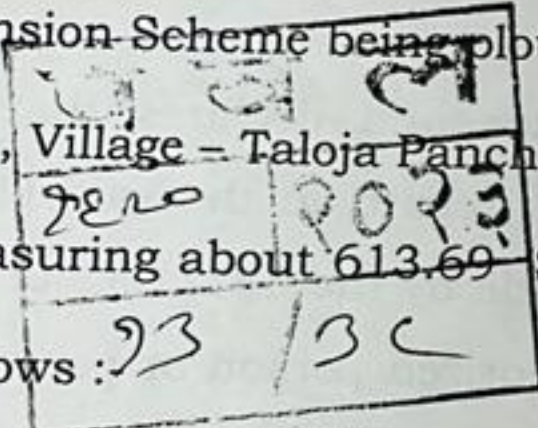 nsion Scheme being plo
प व ल
, Village – Taloja Panch
२०२३
asuring about 613.69
१३ / ३८
ows :